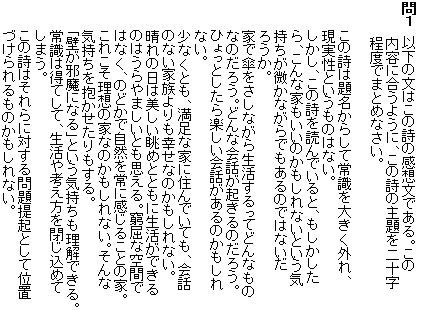 問1
以下の文はこの詩の感想文である。この
内容に合うように、この詩の主題を二十字
程度でまとめなさい。
この詩は題名からして常識を大きく外れ、
現実性というものはない。
しかし、この詩を読んでいると、もしかした
ら、こんな家もいいのかもしれないという気
持ちが微かながらでもあるのではないだ
ろうか。
家で傘をさしながら生活するってどんなもの
なのだろう。どんな会話が起きるのだろう。
ひょっとしたら楽しい会話があるのかもしれ
ない。
少なくとも、満足な家に住んでいても、会話
のない家族よりも幸せなのかもしれない。
晴れの日は美しい眺めとともに生活ができる
のはうらやましいとも思える。窮屈な空間で
はなく、のどかで自然を常に感じることの家。
これこそ理想の家なのかもしれない。そんな
気持ちを抱かせたりもする。
「壁が邪魔になる」という気持ちも理解できる。
常識は得てして、生活や考え方を閉じ込めて
しまう。
この詩はそれらに対する問題提起として位置
づけられるものかもしれない。